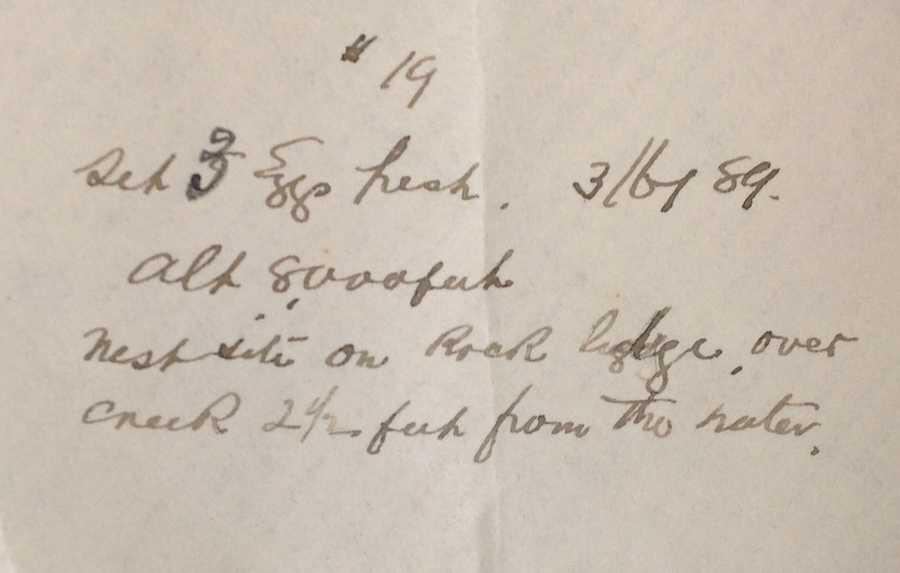 # 19
Set 3 Eggs fresh.
Alt 8,000 feet
Nest site on Rock ledge, over
creek 2 1/2 feet from the water.